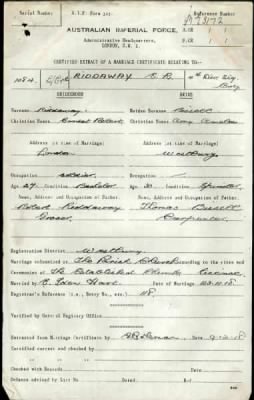 Serial Number A.I.F. Form 501. Reference Number
AUSTRALIAN IMPERIAL FORCE,
Administrative Headquarters,
LONDON, S.W. 1.
CERTIFIED EXTRACT OF A MARRIAGE CERTIFICATE RELATING TO:-
1084 RIDDAWAY E. R.
BRIDEGROOM BRIDE
Surname Riddaway Maiden Surname Bissell
Christian Names Ernest Robert Christian Names Amy Amelia
Address at time of Marriage: Address at time of Marriage:
London Westbury
Occupation soldier Occupation
Age 27 Condition Bachelor Age 30 Condition Spinster
Name, Address, and Occupation of Father. Name, Address and Occupation of Father.
Robert Riddaway Thomas Bissell
Grocer Carpenter
Registration District Westbury
Marriage solemnised at The Parish Church according to the rites and
Ceremonies of The Established Church License
Married by on 23.11.18
Registrar's Reference (i.e., Entry No., etc.) 118
Verified by date at Registry Office
Extracted from Marriage Certificate by 9.12.18
Checked and found correct by
Checked with Records Dated
Ordnance advised by List No Dated